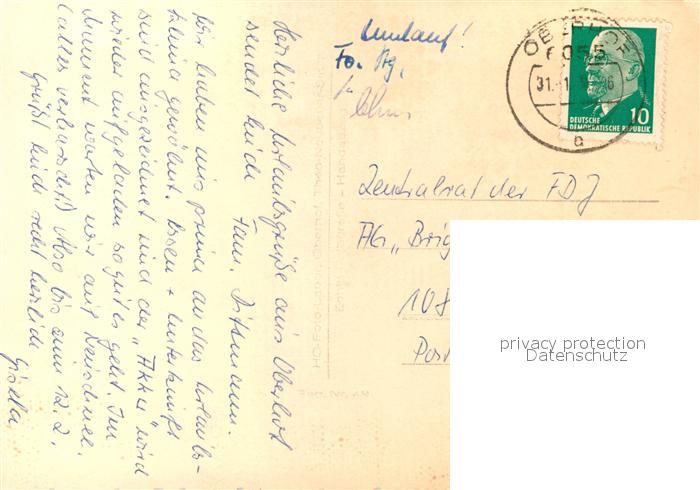 Herzliche Urlaubsgrüße aus Oberhof
sendet Euch Fam. Dittmann.
Wir haben uns prima an das Urlaubs-
klima gewöhnt. Essen + Unterkunft
sind ausgezeichnet und der „Akku" wird
wieder aufgeladen so gut es geht. Im
Moment warten wir auf Neuschnee.
(alles verharscht!) Also bis zum 12. 2.
Grüßt Euch recht herzlich
Gisela
Umlauf!
OBERHOF
6055
31.-1.
a
10
DEUTSCHE
DEMOKRATISCHE REPUBLIK
Zentralrat der FDJ
AG „Brig
108
Post
privacy protection
Datenschutz